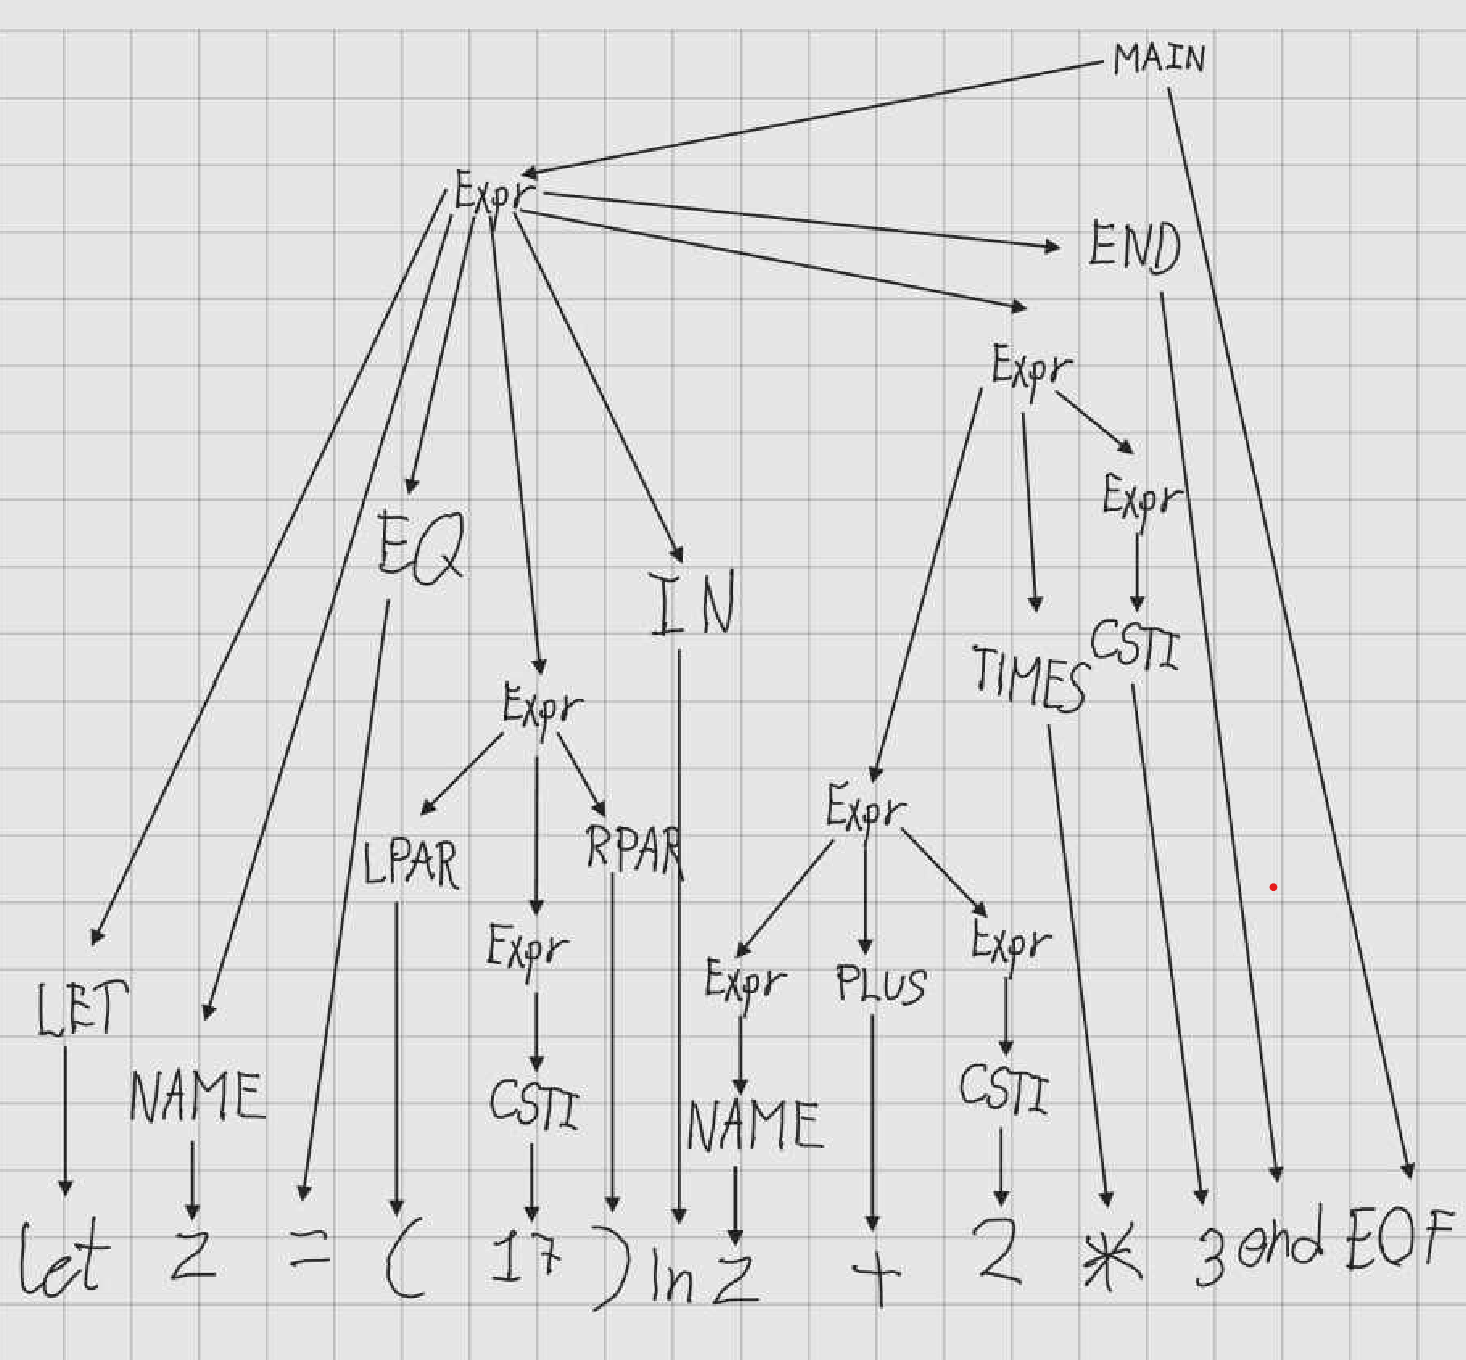 MAIN
Expr
END
Expr
Expr
EQ
IN
TIMES CSTI
Expr
Expr
LPAR RPAR
Expr Expr PLUS Expr
LET
NAME CSTI NAME CSTI
let z = ( 17 ) in z + 2 * 3 end EOF